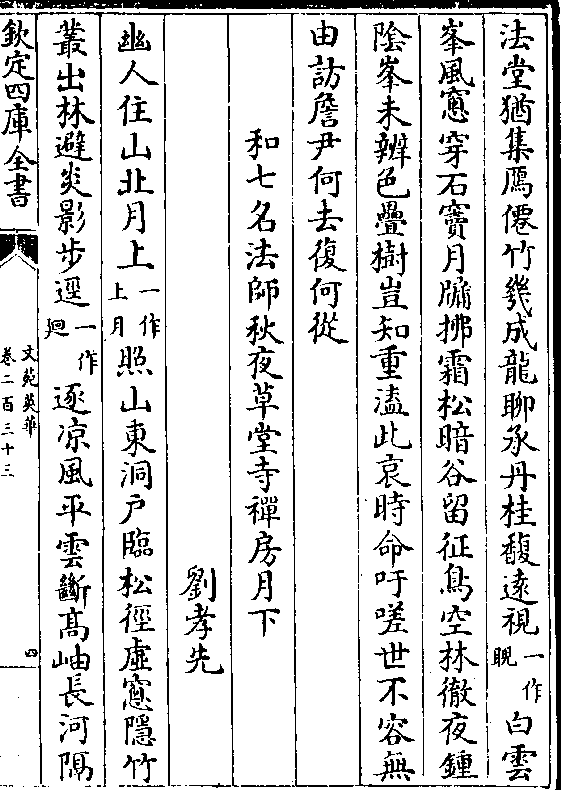 法堂猶集鴈僊竹幾成龍聊承丹桂馥遠視一作睨白雲
峯風窻穿石竇月牖拂霜松暗谷留征鳥空林徹夜鍾
陰峯未辨色疊樹豈知重溘此哀時命吁嗟世不容無
由訪詹尹何去復何從
和七名法師秋夜草堂寺禪房月下
劉孝先
幽人住山北月上一作上月照山東洞戶臨松徑虛窻隱竹
叢出林避炎影步逕一作廻逐凉風平雲斷高岫長河隔
欽定四庫全書
文苑英華
卷二百三十三
四